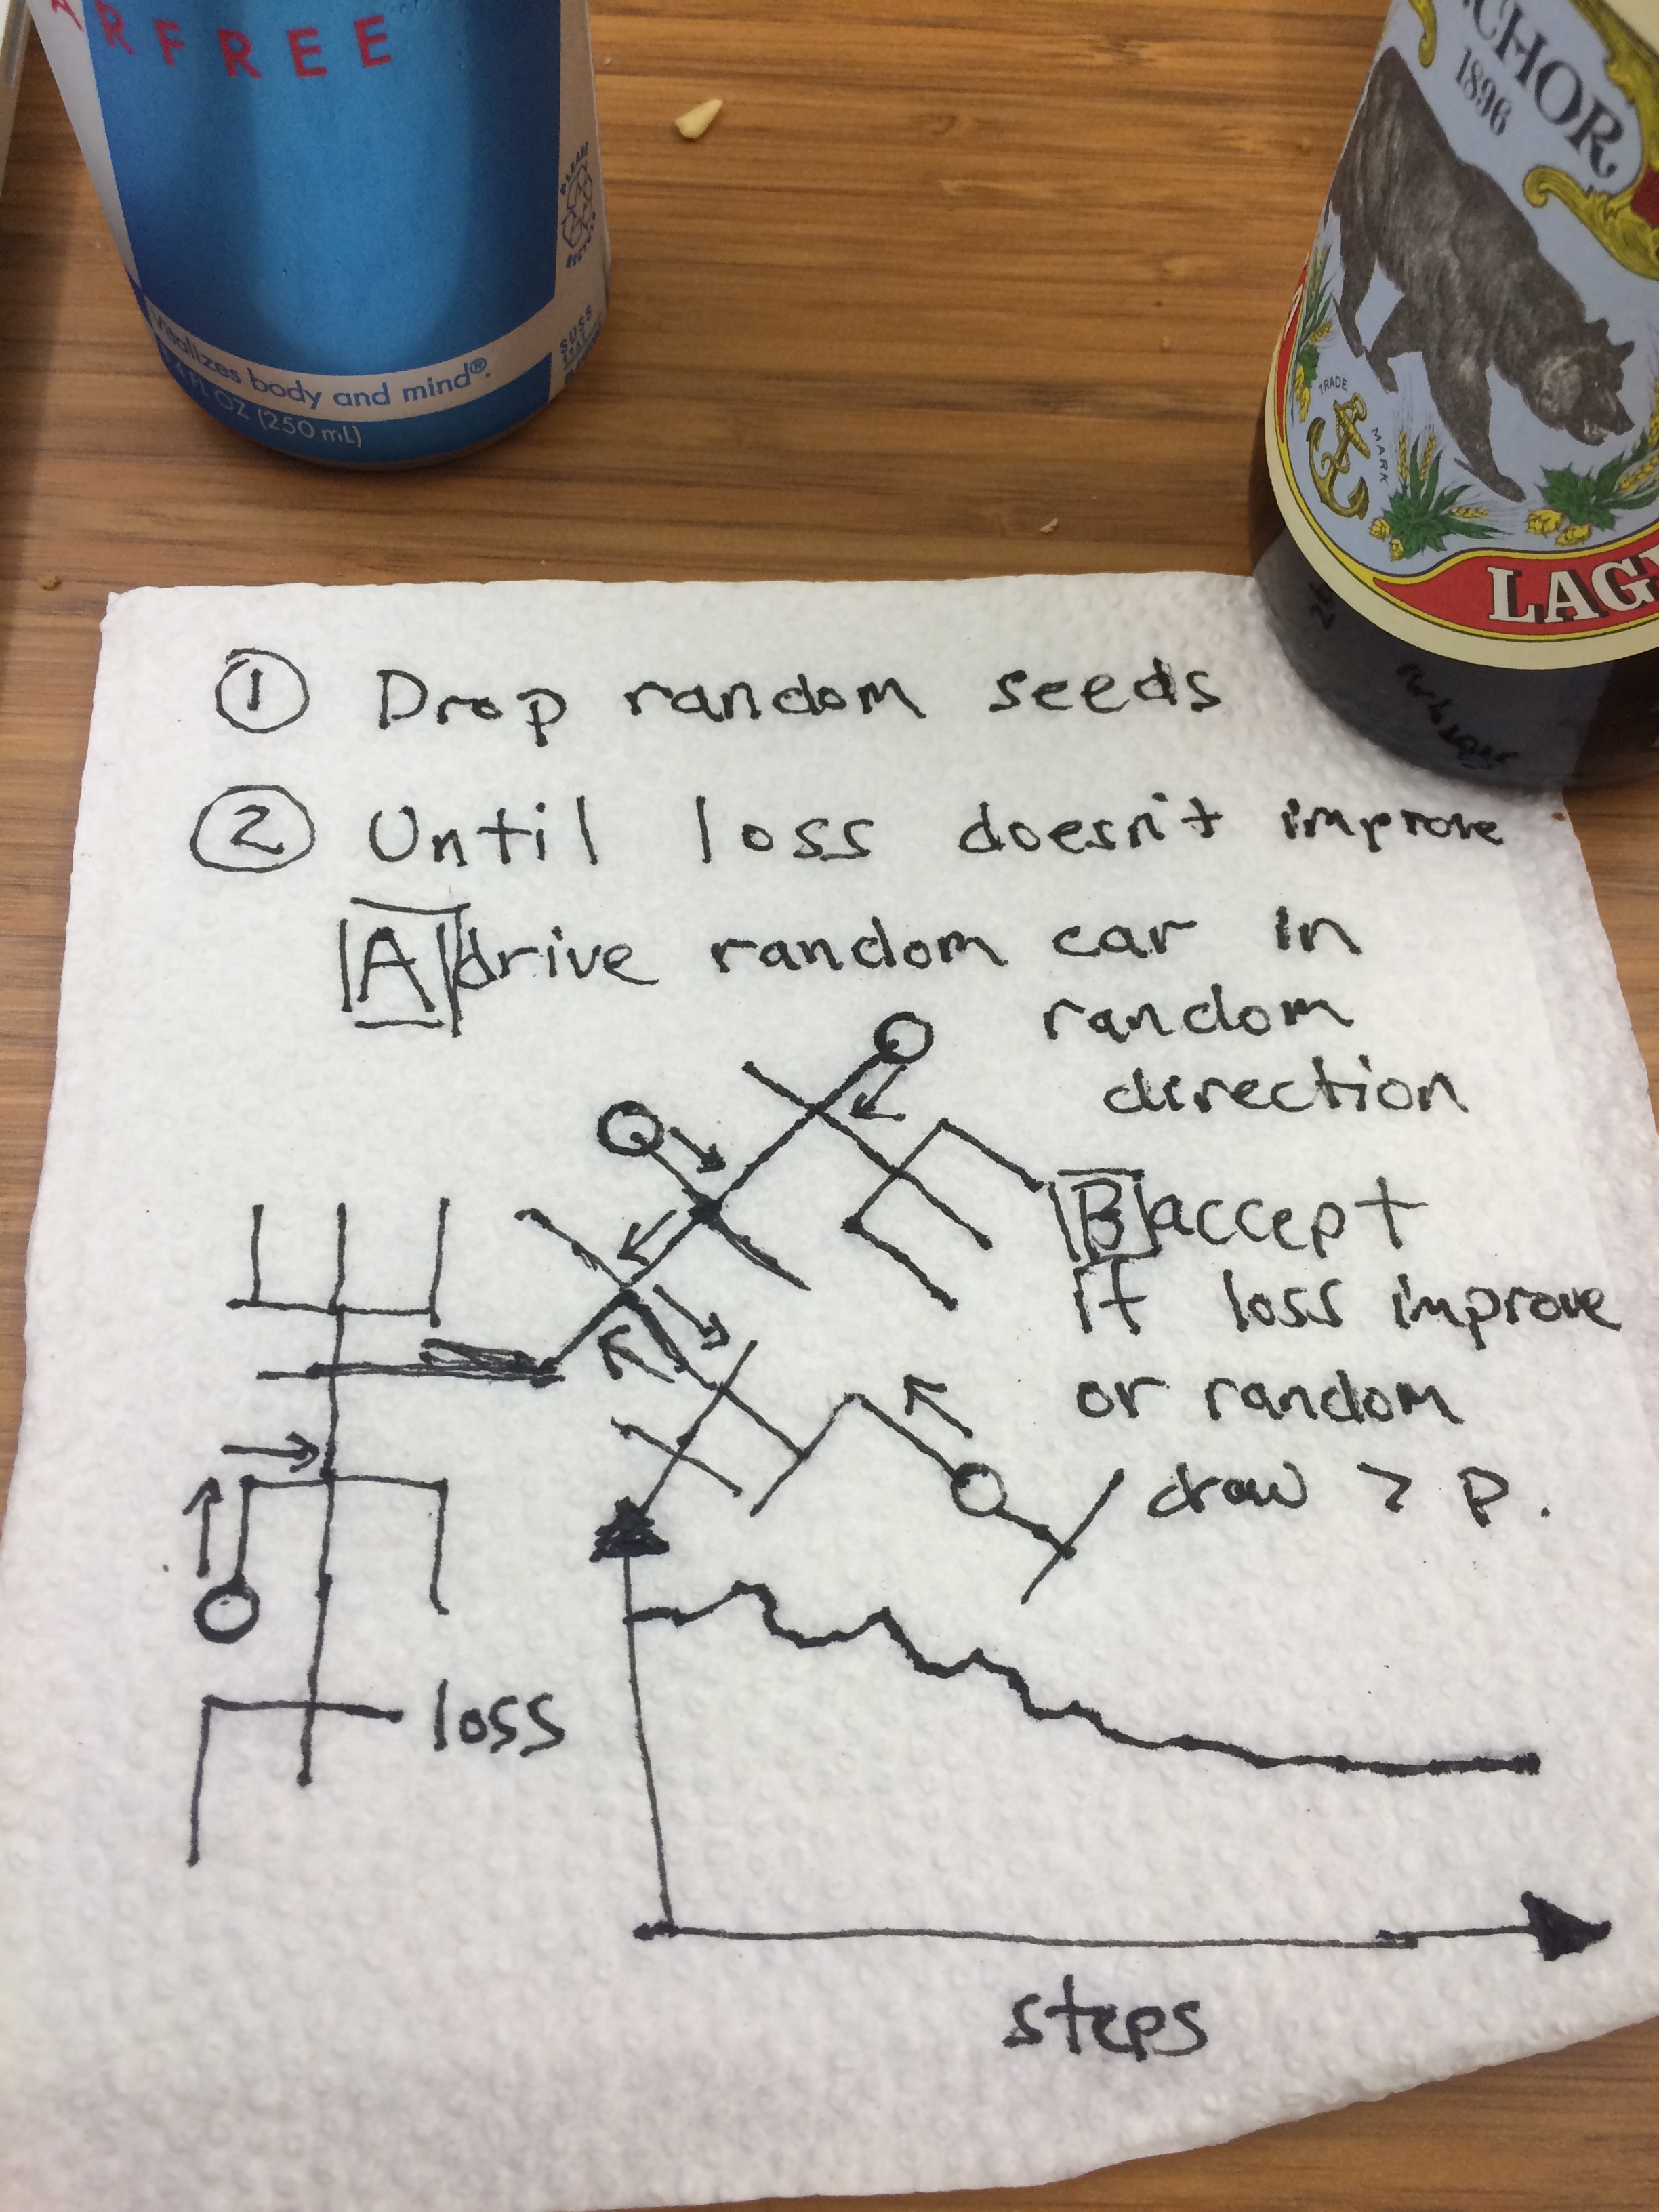 ARFREE
PLEASE
RECYCLE
vitalizes body and mind®.
8.4 FL OZ (250 mL)
CHOR
1896
TRADE
MARK
LAG
① Drop random seeds
② Until loss doesn't improve
A drive random car in
random
direction
B accept
if loss improve
or random
draw > p.
loss
steps